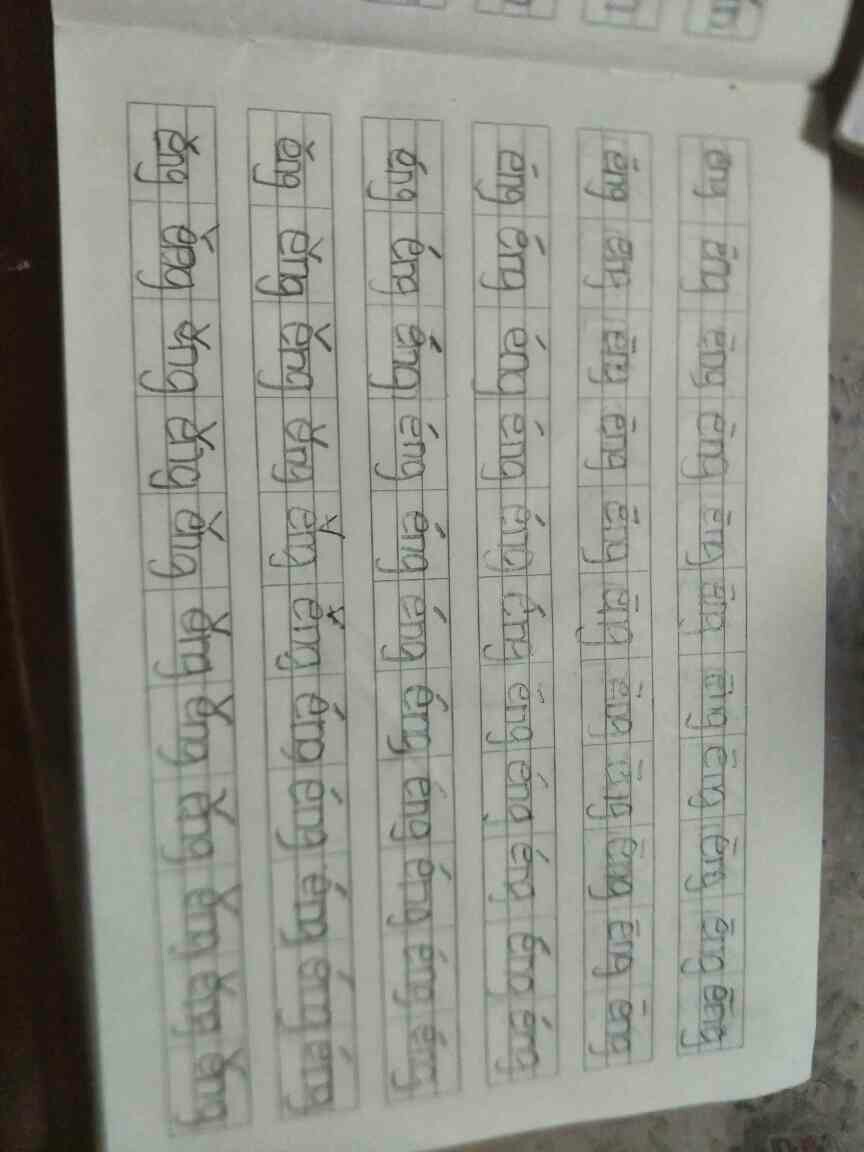 ēng ēng ēng ēng ēng ēng ēng ēng ēng ēng ēng
ēng ēng ēng ēng ēng ēng ēng ēng ēng ēng ēng
éng éng éng éng éng éng éng éng éng éng éng
éng éng éng éng éng éng éng éng éng éng éng
ěng ěng ěng ěng ěng ěng éng éng éng éng éng
ěng ěng ěng ěng ěng ěng ěng ěng ěng ěng ěng